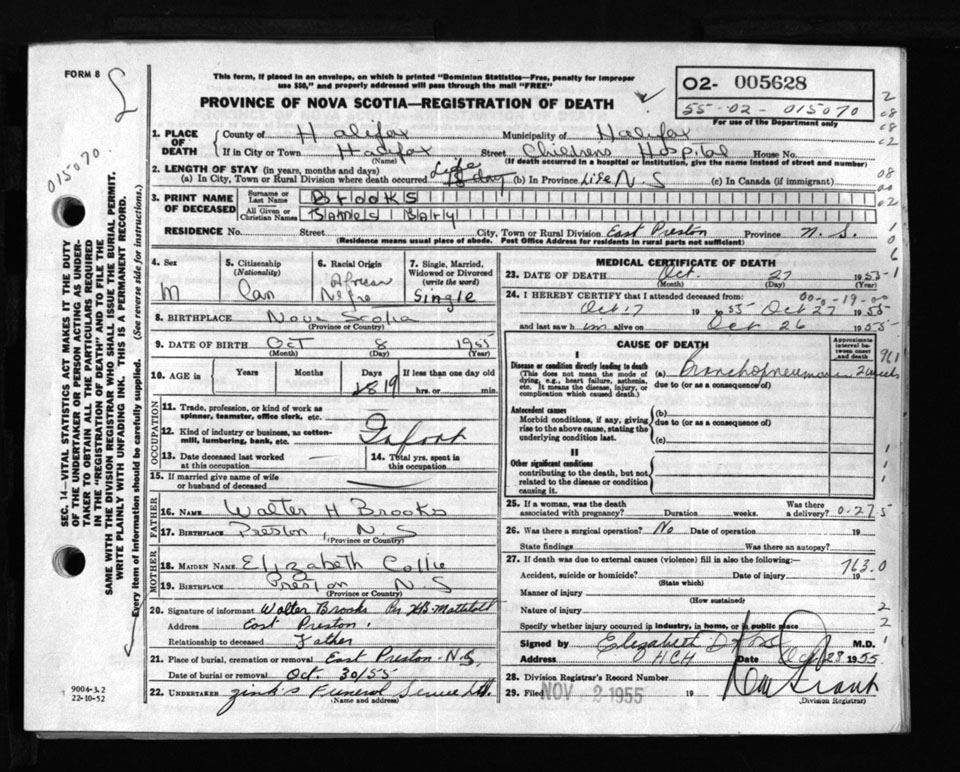 FORM 8
This form, if placed in an envelope, on which is printed "Dominion Statistics—Free, penalty for improper
use $50," and properly addressed will pass through the mail "FREE"
PROVINCE OF NOVA SCOTIA—REGISTRATION OF DEATH
02- 005628
55-02-015070
For use of the Department only
015070
SEC. 14—VITAL STATISTICS ACT MAKES IT THE DUTY
OF THE UNDERTAKER OR PERSON ACTING AS UNDER-
TAKER TO OBTAIN ALL THE PARTICULARS REQUIRED
IN THE "REGISTRATION OF DEATH" AND TO FILE THE
SAME WITH THE DIVISION REGISTRAR WHO SHALL ISSUE THE BURIAL PERMIT.
WRITE PLAINLY WITH UNFADING INK. THIS IS A PERMANENT RECORD.
Every item of information should be carefully supplied. (See reverse side for instructions.)
1. PLACE OF DEATH
County of Halifax Municipality of Halifax
If in City or Town Halifax Street Childrens Hospital House No.
(Name) (If death occurred in a hospital or institution, give the name instead of street and number)
2. LENGTH OF STAY (in years, months and days)
(a) In City, Town or Rural Division where death occurred Life (b) In Province Life N S (c) In Canada (if immigrant)
3. PRINT NAME OF DECEASED
Surname or Last Name Brooks
All Given or Christian Names James Bary
RESIDENCE No. Street City, Town or Rural Division East Preston Province N. S.
(Residence means usual place of abode. Post Office Address for residents in rural parts not sufficient)
4. Sex
M
5. Citizenship (Nationality)
Can
6. Racial Origin
African
Negro
7. Single, Married, Widowed or Divorced (write the word)
Single
8. BIRTHPLACE Nova Scotia
(Province or Country)
9. DATE OF BIRTH Oct 8 1955
(Month) (Day) (Year)
10. AGE in Years Months Days If less than one day
18 19 hrs. or min.
OCCUPATION
11. Trade, profession, or kind of work as spinner, teamster, office clerk, etc.
12. Kind of industry or business, as cotton-mill, lumbering, bank, etc. Infant
13. Date deceased last worked at this occupation
14. Total yrs. spent in this occupation
15. If married give name of wife or husband of deceased
FATHER
16. NAME Walter H Brooks
17. BIRTHPLACE Preston N S
(Province or Country)
MOTHER
18. MAIDEN NAME Elizabeth Collie
19. BIRTHPLACE Preston N S
(Province or Country)
20. Signature of informant Walter Brooks Per
Address East Preston.
Relationship to deceased Father
21. Place of burial, cremation or removal East Preston N.S.
Date of burial or removal Oct. 30/55
22. UNDERTAKER Zink's Funeral Service Ltd.
(Name and address)
9004-3.2
22-10-52
MEDICAL CERTIFICATE OF DEATH
23. DATE OF DEATH Oct. 27 1955
(Month) (Day)
00-0-19-00
24. I HEREBY CERTIFY that I attended deceased from:
Oct 17 1955 to Oct 27 1955
and last saw him alive on Oct 26 1955
CAUSE OF DEATH
Approximate interval between onset and death
I
Disease or condition directly leading to death
(This does not mean the mode of dying, e.g., heart failure, asthenia, etc. It means the disease, injury, or complication which caused death.)
(a) Bronchopneumonia 2 weeks
due to (or as a consequence of)
Antecedent causes
Morbid conditions, if any, giving rise to the above cause, stating the underlying condition last.
(b)
due to (or as a consequence of)
(c)
II
Other significant conditions
contributing to the death, but not related to the disease or condition causing it.
25. If a woman, was the death associated with pregnancy? Duration weeks. Was there a delivery?
0.275
26. Was there a surgical operation? No Date of operation 19
State findings Was there an autopsy?
27. If death was due to external causes (violence) fill in also the following:—
763.0
Accident, suicide or homicide? Date of injury 19
(State which)
Manner of injury
(How sustained)
Nature of injury
Specify whether injury occurred in industry, in home, or in public place
Signed by Elizabeth M.D.
Address HCH Date Oct 28 1955
28. Division Registrar's Record Number
29. Filed NOV 2 1955 19
(Division Registrar)